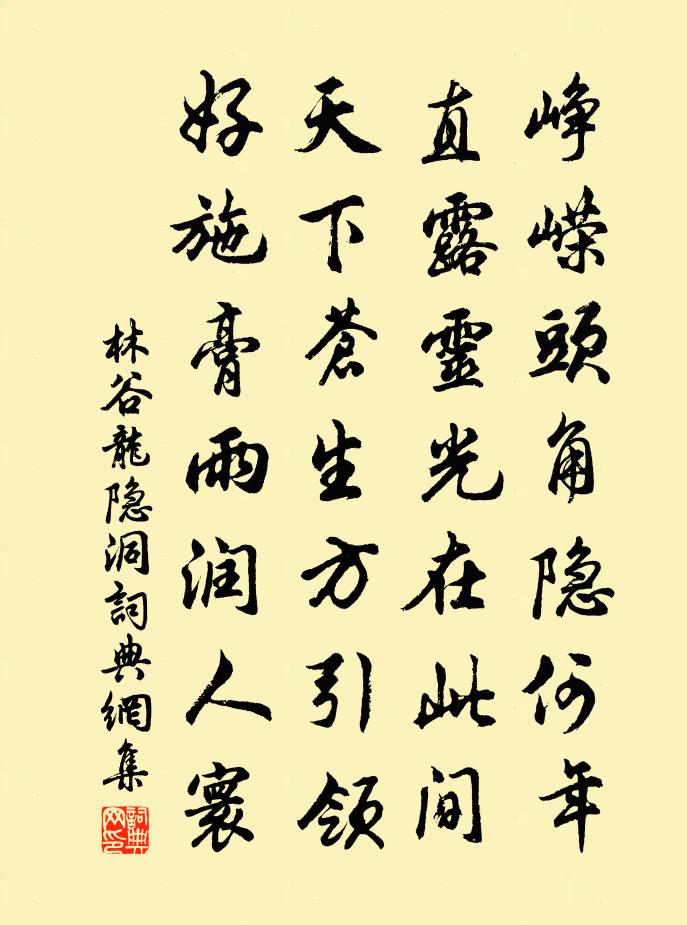 峥嶸頭角隐何年
直露靈光在此間
天下蒼生方引領
好施膏雨润人寰
林谷龍隐洞詞典網集
詞典网印